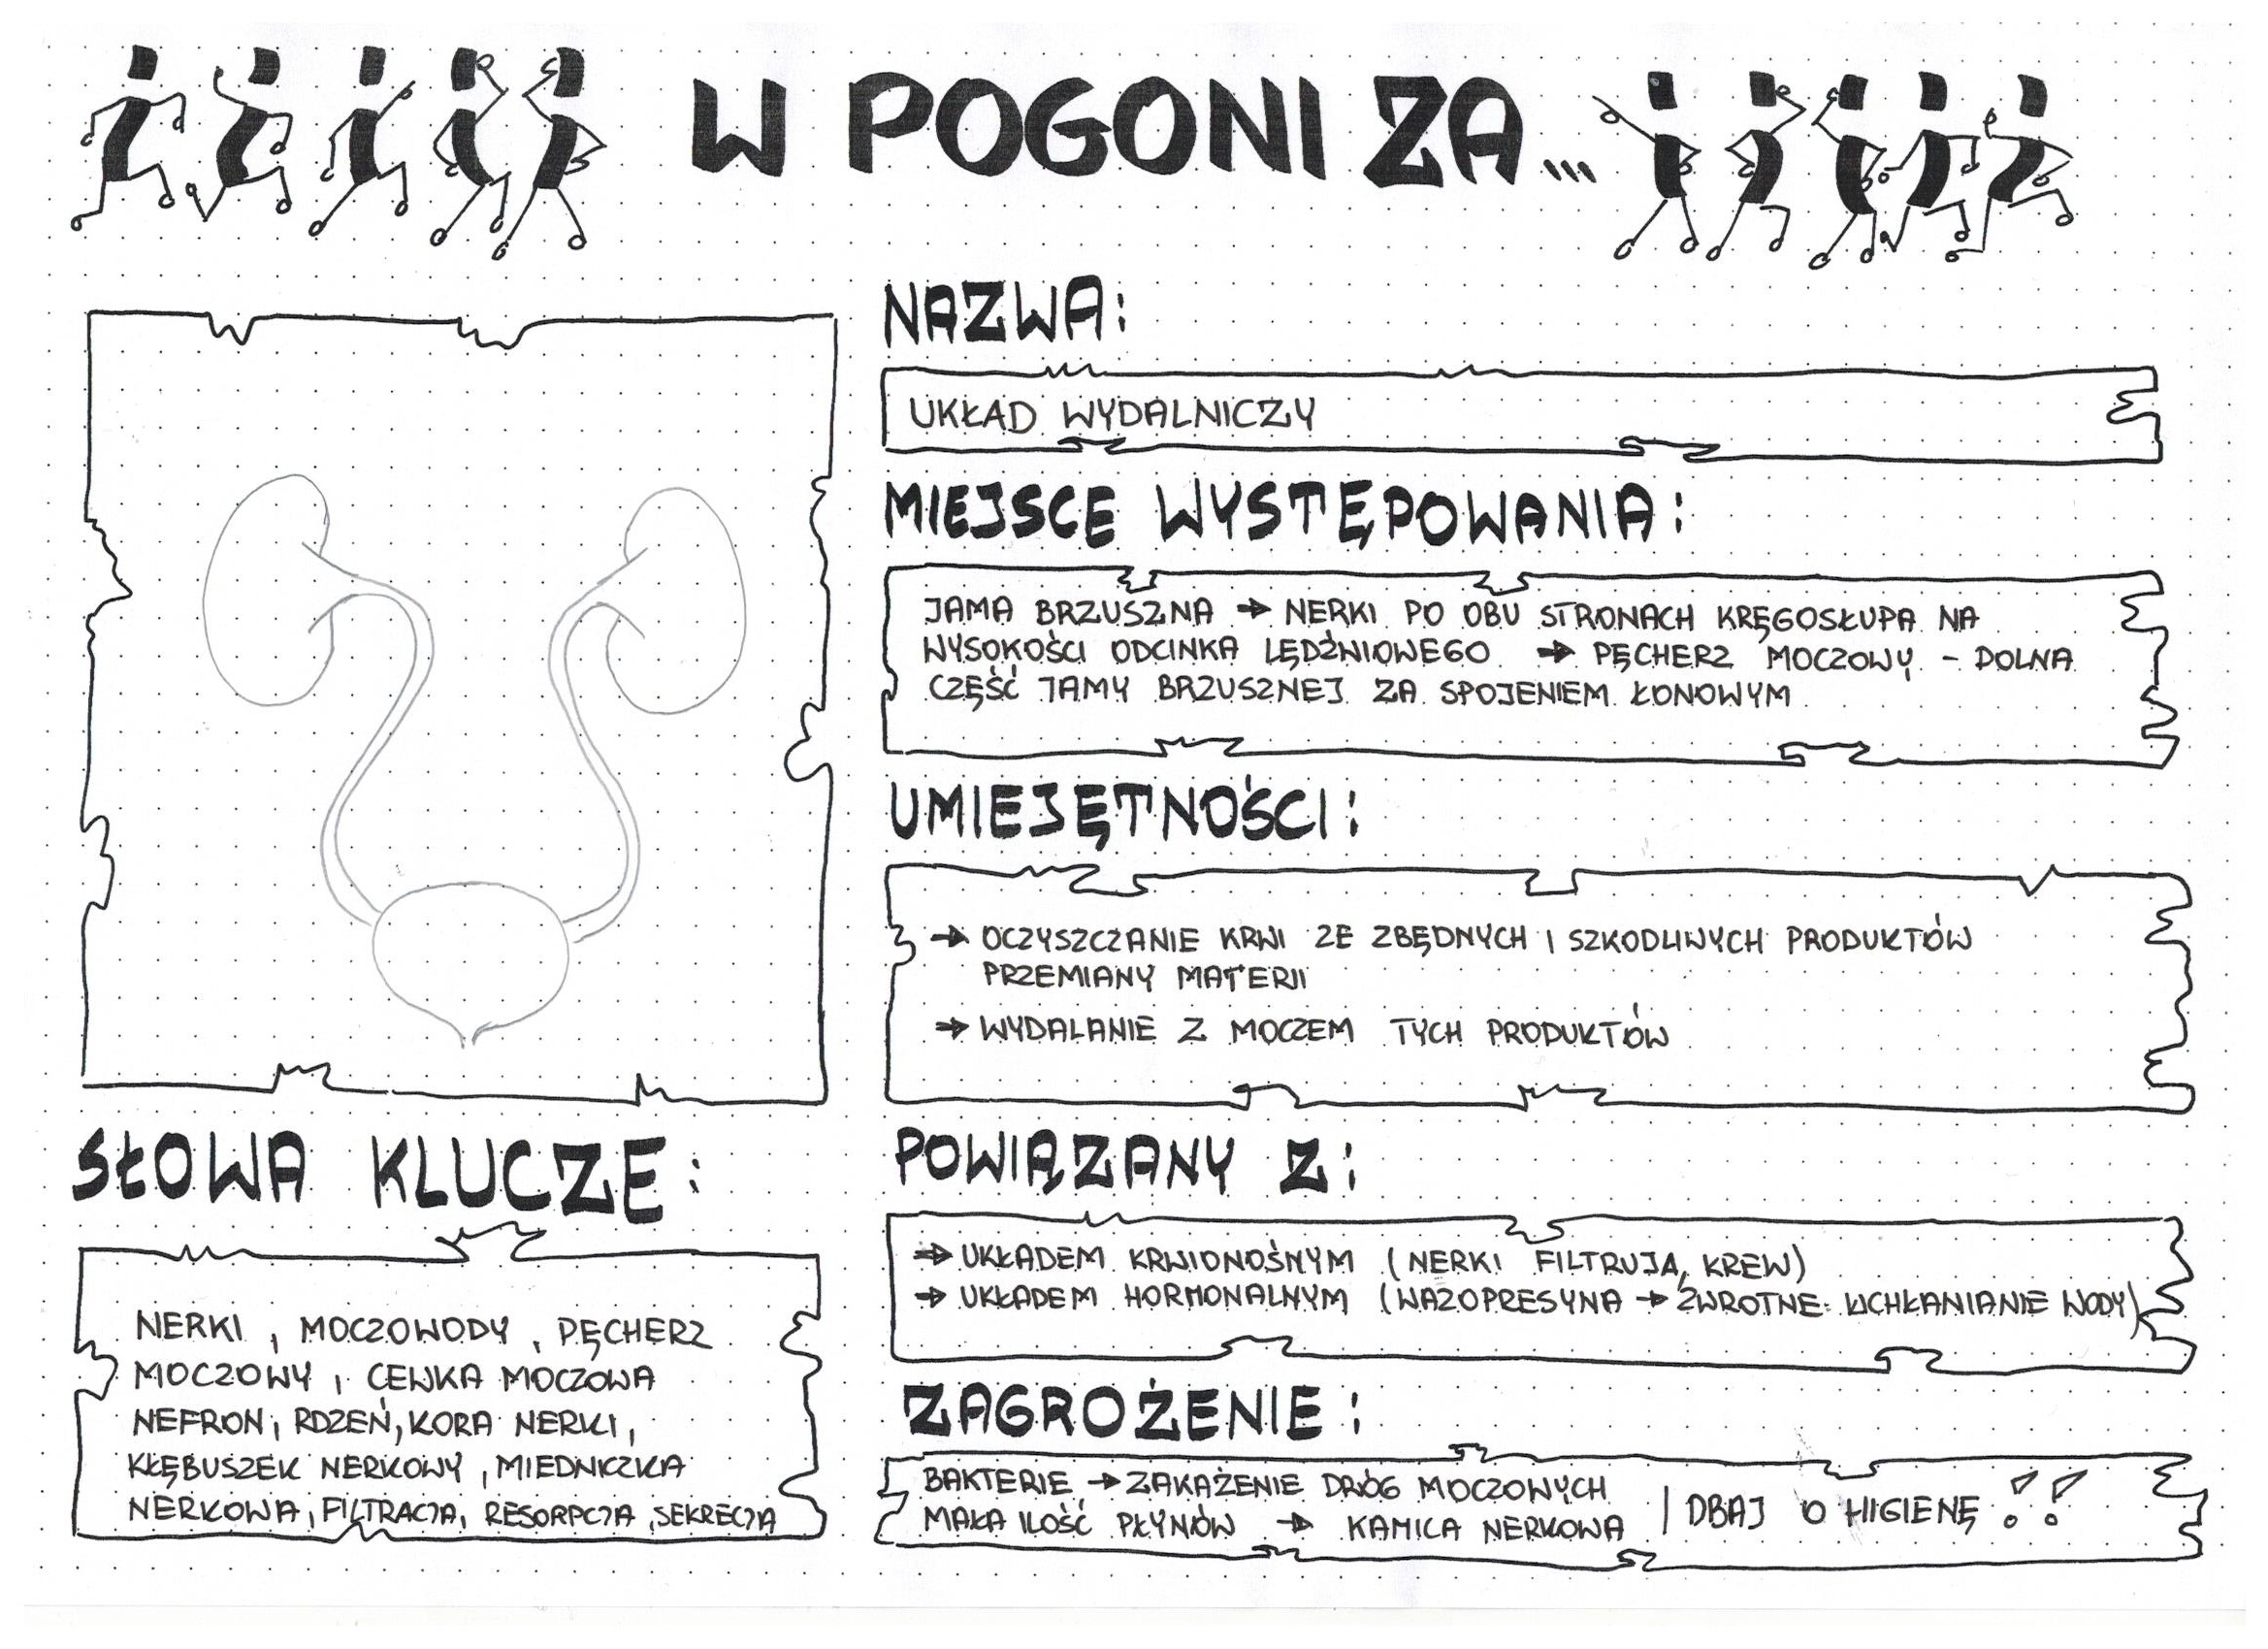 W POGONI ZA...
NAZWA:
UKŁAD WYDALNICZY
MIEJSCE WYSTĘPOWANIA:
JAMA BRZUSZNA → NERKI PO OBU STRONACH KRĘGOSŁUPA NA
WYSOKOŚCI ODCINKA LĘDŹWIOWEGO → PĘCHERZ MOCZOWY - DOLNA
CZĘŚĆ JAMY BRZUSZNEJ ZA SPOJENIEM ŁONOWYM
UMIEJĘTNOŚCI:
→ OCZYSZCZANIE KRWI ZE ZBĘDNYCH I SZKODLIWYCH PRODUKTÓW
PRZEMIANY MATERII
→ WYDALANIE Z MOCZEM TYCH PRODUKTÓW
SŁOWA KLUCZE:
NERKI, MOCZOWODY, PĘCHERZ
MOCZOWY, CEWKA MOCZOWA
NEFRON, RDZEŃ, KORA NERKI,
KŁĘBUSZEK NERKOWY, MIEDNICZKA
NERKOWA, FILTRACJA, RESORPCJA, SEKRECJA
POWIĄZANY Z:
→ UKŁADEM KRWIONOŚNYM (NERKI FILTRUJĄ KREW)
→ UKŁADEM HORMONALNYM (WAZOPRESYNA → ZWROTNE WCHŁANIANIE WODY)
ZAGROŻENIE:
BAKTERIE → ZAKAŻENIE DRÓG MOCZOWYCH
MAŁA ILOŚĆ PŁYNÓW → KAMICA NERKOWA | DBAJ O HIGIENĘ !!